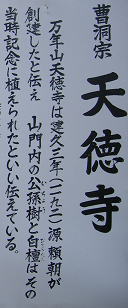 曹洞宗
天徳寺
万年山天徳寺は建久二年(一一九一)源頼朝が
創建したと伝え 山門内の公孫樹と白檀はその
いちょう
びゃくだん
当時記念に植えられたといい伝えている。